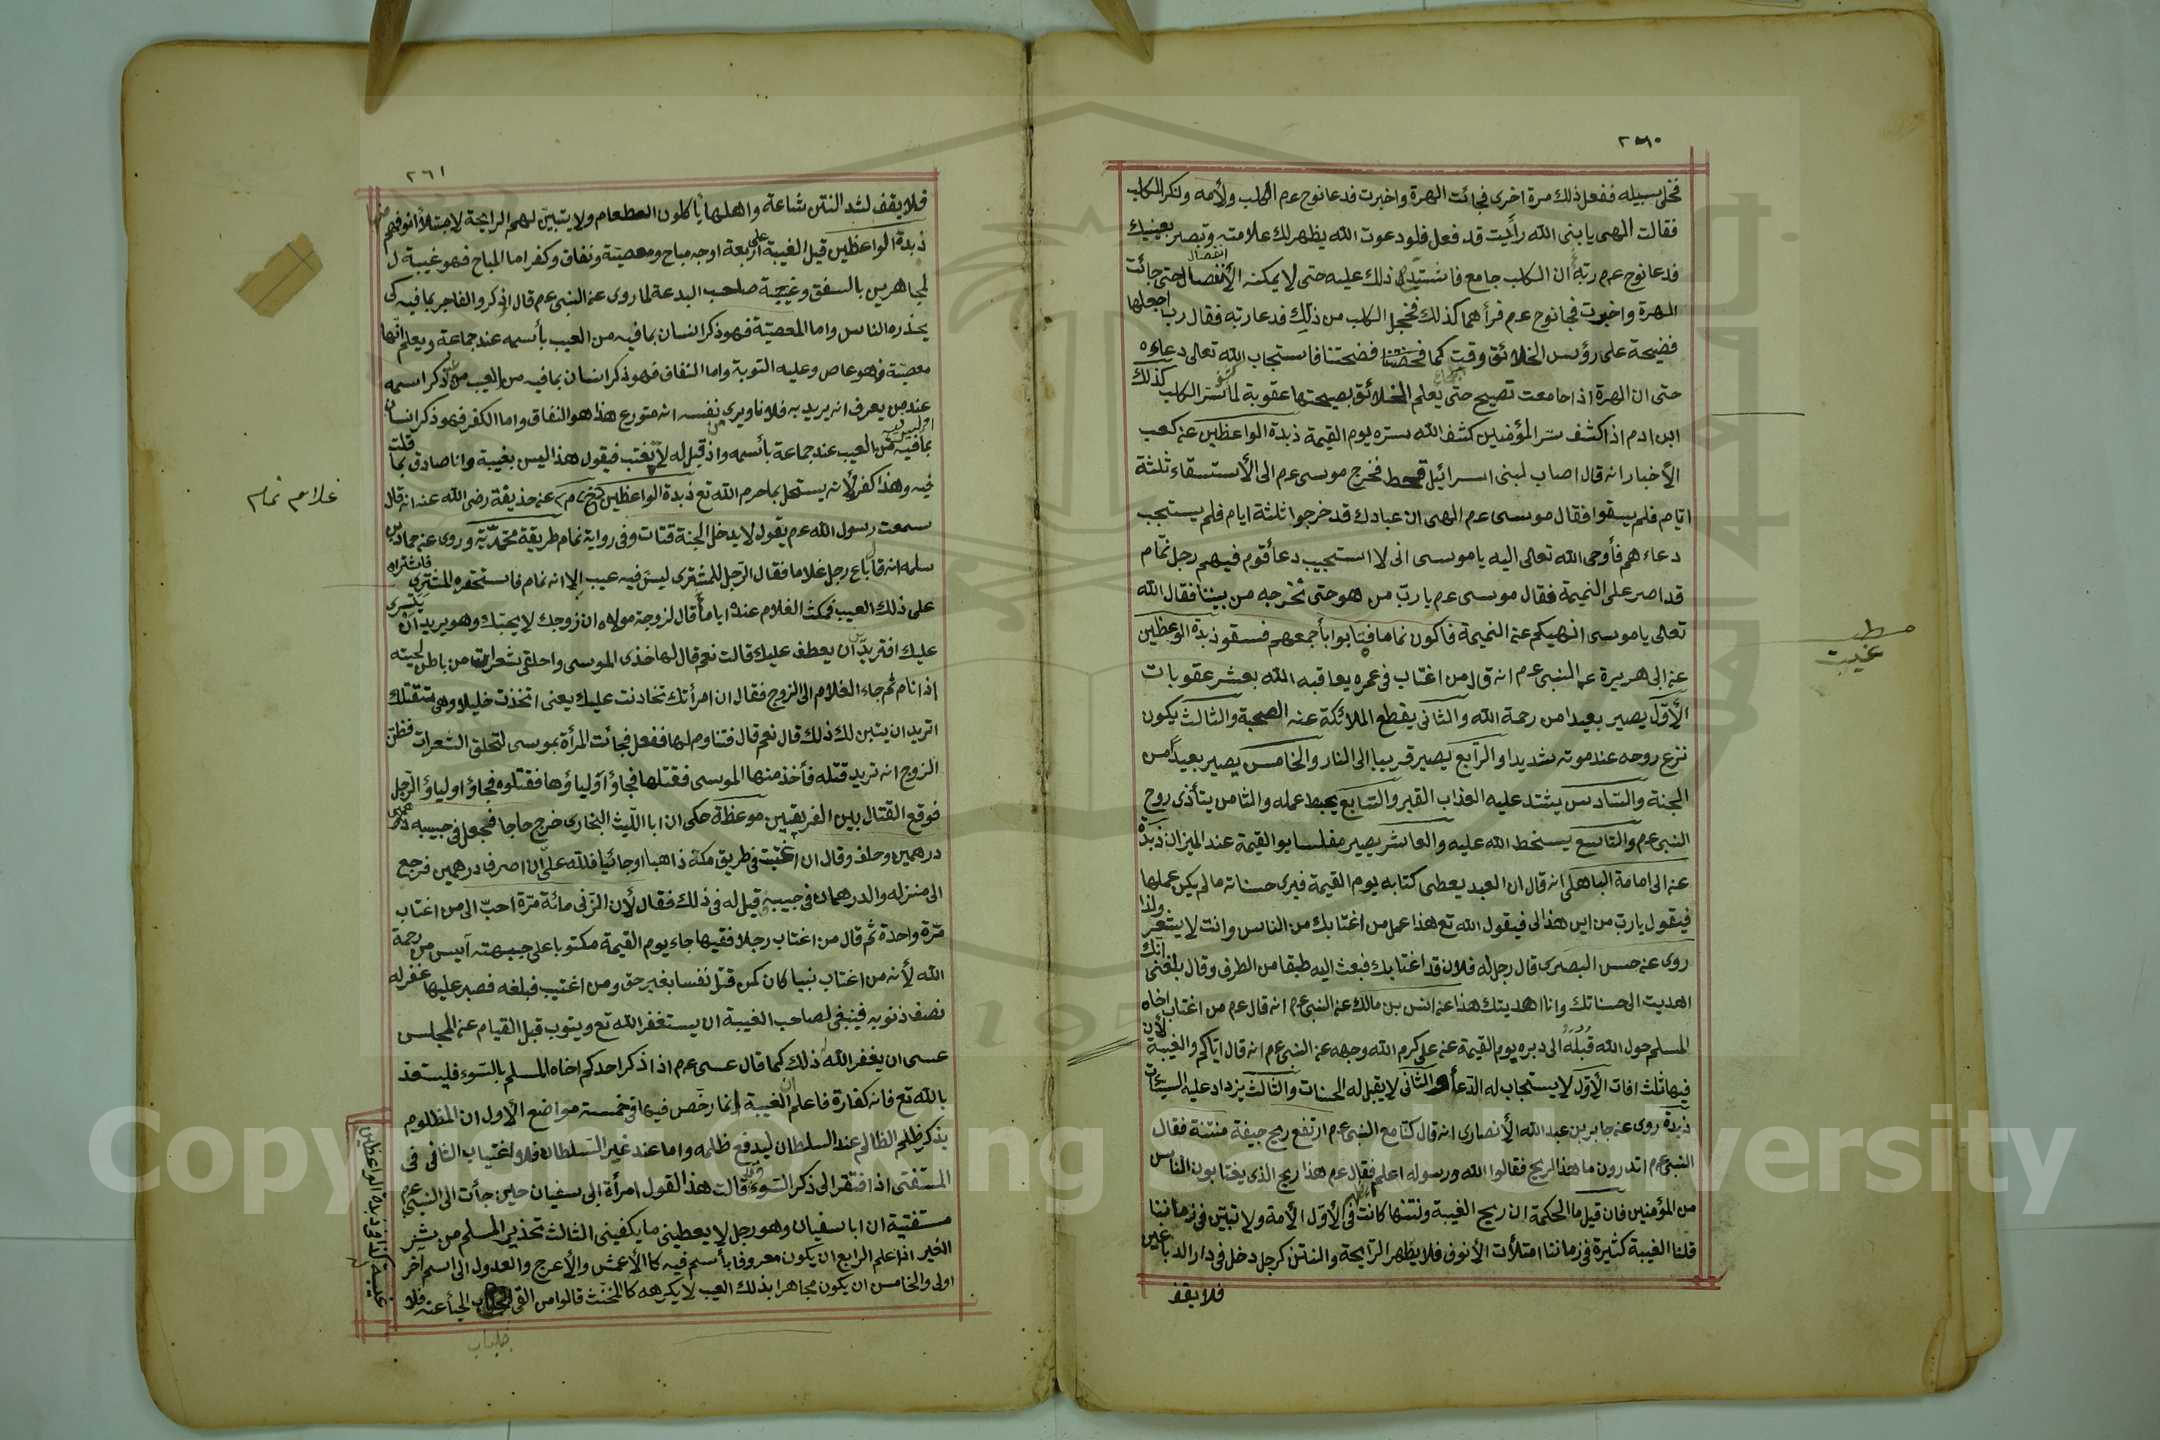 ٢٦٠
فخلى سبيله ففعل ذلك مرة اخرى فجائت الهرة واخبرت فدعا نوح عم الكلب ولأمه وانكر الكلب
فقالت الهى يا بنى الله رأيت قد فعل فلو دعوت الله يظهر لك علامته وتبصر بعينيك
فدعا نوح عم ربه ان الكلب جامع فاشتد ذلك عليه حتى لا يمكنه الأنفصال حتى جائت
انفصال
الهرة واخبرت فجا نوح عم فرأهما كذلك فخجل الكلب من ذلك فدعا ربه فقال رب اجعلها
فضيحة على رؤس الخلائق وقت كما فضحتنا فاستجاب الله تعالى دعاءه
حتى ان الهرة اذا جامعت تصيح حتى يعلم الخلائق بصيحتها عقوبة لما ستر الكلب كذلك
ابن ادم اذا كشف ستر المؤمنين كشف الله ستره يوم القيمة زبدة الواعظين عن كعب
الأخبار انه قال اصاب لبنى اسرائيل قحط فخرج موسى عم الى الأستسقاء ثلثة
ايام فلم يسقوا فقال موسى عم الهى ان عبادك قد خرجوا ثلثة ايام فلم يستجب
دعاءهم فأوحى الله تعالى اليه يا موسى انى لا استجيب دعأ قوم فيهم رجل نمّام
قد اصر على النميمة فقال موسى عم يا ربّ من هو حتى نخرجه من بيننا فقال الله
تعالى يا موسى انهيكم عن النميمة فاكون نماما فتابوا بأجمعهم فسقو زبدة الوعظين
عن ابى هريرة عن النبى عم انه قال من اغتاب فى عمره يعاقبه الله بعشر عقوبات
الأوّل يصير بعيدا من رحمة الله والثانى يقطع الملائكة عنه الصحبة والثالث يكون
نزع روحه عند موته شديدا والرابع يصير قريبا الى النار والخامس يصير بعيداً من
الجنة والسّادس يشتد عليه العذاب القبر والسّابع يحبط عمله والثامن يتأذى روح
النبى عم والتاسع يسخط الله عليه والعاشر يصير مفلسا يو القيمة عند الميزان زبدة
عن ابى امامة الباهلى انه قال ان العبد يعطى كتابه يوم القيمة فيرى حسناته مالم يكن عملها
فيقول يا ربّ من اين هذا لى فيقول الله تع هذا عمل من اغتابك من الناس وانت لا يشعر ولذا
روى عن حسن البصرى قال رجل له فلان قد اغتابك فبعث اليه طبقا من الطرف وقال بلغنى انّك
اهديت الى حسناتك وانا اهديتك هذا عن انس بن مالك عن النبى عم انه قال عم من اغتاب اخاه
المسلم حول الله قُبُلَهُ الى دبره يوم القيمة عن على كرم الله وجهه عن النبى عم انه قال اياكم والغيبة لأن
فيها ثلث افات الأوّل لا يستجاب له الدّعأ والثّانى لا يقبل له الحسنات والثالث يزداد عليه السيئات
زبدة روى عن جابر بن عبد الله الأنصارى انه قال كنا مع النبى عم ارتفع ريح جيفة منتنة فقال
النبى عم اتدرون ما هذا الريح فقالوا الله ورسوله اعلم فقال عم هذا ريح الذى يغتابون الناس
من المؤمنين فان قيل ما الحكمة ان ريح الغيبة ونتنها كانت فى الأوّل الأمة ولا تبيّن فى زماننا
قلنا الغيبة كثيرة فى زماننا امتلأت الأنوف فلا يظهر الرايحة والمنتن كرجل دخل فى دار الدباغين
فلا يقف
مطلب
غيبت
٢٦١
فلا يقف لشد النتن شاعة واهلها يأكلون الطعام ولا يتبيّن لهم الرايحة لامتلأ انوفهم منها
زبدة الواعظين قيل الغيبة على اربعة اوجه مباح ومعصيّة ونفاق وكفر اما المباح فهو غيبة ل
لمجاهرين بالسفق وغيبة صاحب البدعة لما روى عن النبى عم قال اذكروا الفاجر بما فيه كى
يحذره الناس واما المعصيّة فهو ذكر انسان بما فيه من العيب بأسمه عند جماعة ويعلم انّها
معصيّة فهو عاص وعليه التوبة واما النفاق فهو ذكر انسان بما فيه من العيب من ذكر اسمه
عند من يعرف انه يريد به فلانا ويرى نفسه انه متورع هذا هو النفاق واما الكفر فهو ذكر انسان
بما فيه من العيب عند جماعة بأسمه واذ قيل له لا تغتب فيقول هذا ليس بغيبة وانا صادق بما قلت
فيه وهذا كفر لأنه يستحل بما حرم الله تع زبدة الواعظين خ م عن حذيفة رضى الله عنه انه قال
سمعت رسول الله عم يقول لا يدخل الجنة قتات وفى رواية نمام طريقة محمّديّة وروى عن حماد بن
سلمه انه قا باع رجل غلاما فقال الرّجل للمشترى ليس فيه عيب الا انه نمام فاستحقره المشترى فاشتراه
على ذلك العيب فمكث الغلام عنده اياماً قال لزوجة مولاه ان زوجك لا يحبّك وهو يريد ان يتسرى
عليك افتريدين ان يعطف عليك قالت نعم قال لها خذى الموسى واحلقى شعرات من باطن لحيته
اذا نام ثم جاء الغلام الى الزوج فقال ان امرأتك تخادنت عليك يعنى اتخذت خليلا وهى تقتلك
اتريد ان يتبن لك ذلك قال نعم قال فتناوم لها ففعل فجائت المرأة بموسى لتحلق الشعرات فظن
الزوج انه تريد قتله فأخذ منها الموسى فقتلها فجاؤ اوليا ؤها فقتلوه فجاؤ اوليا ؤ الرّجل
فوقع القتال بين الفريقين موعظة حكى ان ابا اللّيث البخارى خرج حاجا فجعل فى جيبه
درهمين وحلف وقال ان اغتبت فى طريق مكة ذاهبا او جائيا فلله علىّ ان اصرف درهمين فرجع
الى منزله والدرهمان فى جيبه قيل له فى ذلك فقال لأن الزنى مائة مرّة احبّ الى من اغتاب
مرّة واحدة ثم قال من اغتاب رجلا فقيها جاء يوم القيمة مكتوبا على جبهته آيس من رحمة
الله لأنه من اغتاب نبيا كان كمن قتل نفسا بغير حق ومن اغتيب فبلغه فصبر عليها غفر له
نصف ذنوبه فينبغى لصاحب الغيبة ان يستغفر الله تع ويتوب قبل القيام عن المجلس
عسى ان يغفر الله ذلك كما قال عسى عم اذا ذكر احدكم اخاه المسلم بالسّوء فليستعذ
بالله تع فانه كفارة فاعلم ان الغيبة انما رخّص فيها فى خمسة مواضع الأول ان المظلوم
يذكر ظلم الظالم عند السلطان ليدفع ظلمه واما عند غير السّلطان فلا اغتياب الثانى فى
المستفتى اذا افتقر الى ذكر السّوء قالت هذا القول امرأة ابى سفيان حين جأت الى النبى عم
مستفتية ان ابا سفيان وهو رجل لا يعطينى ما يكفينى الثالث تحذير المسلم من شر
الغير اذا علم الرابع ان يكون معروفا بأسم فيه كالأعمش والأعرج والعدول الى اسم آخر
اولى والخامس ان يكون مجاهرا بذلك العيب لا يكرهه كالمخنث قالوا من القى الحيأ عنه فلا
جلباب
غلام نمام
غيبة كذا فى زبدة الواعظين
Copyright © King Saud University